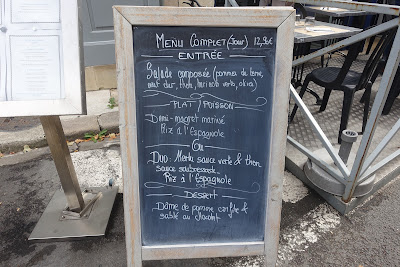 MENU COMPLET (Jour) 12,90€
ENTRÉE
Salade composée (pommes de terre,
œuf dur, thon, haricots verts, olives)
PLAT / POISSON
Demi-magret mariné
Riz à l'Espagnole
Ou
Duo: sauce verte & thon
sauce
Riz à l'Espagnole
DESSERT
Dôme de pomme confite &
sablé au chocolat